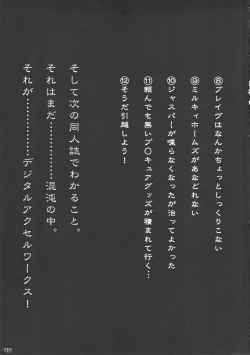 ⑧ブレイヴはなんかちょっとしっくりこない
⑨ミルキィホームズがあなどれない
⑩ジャスパーが喋らなくなったが治ってよかった
⑪頼んでも無いプ○キュアグッズが積まれて行く…
⑫そうだ引越しよう！
そして次の同人誌でわかること。
それはまだ…………混沌の中。
それが…………デジタルアクセルワークス！